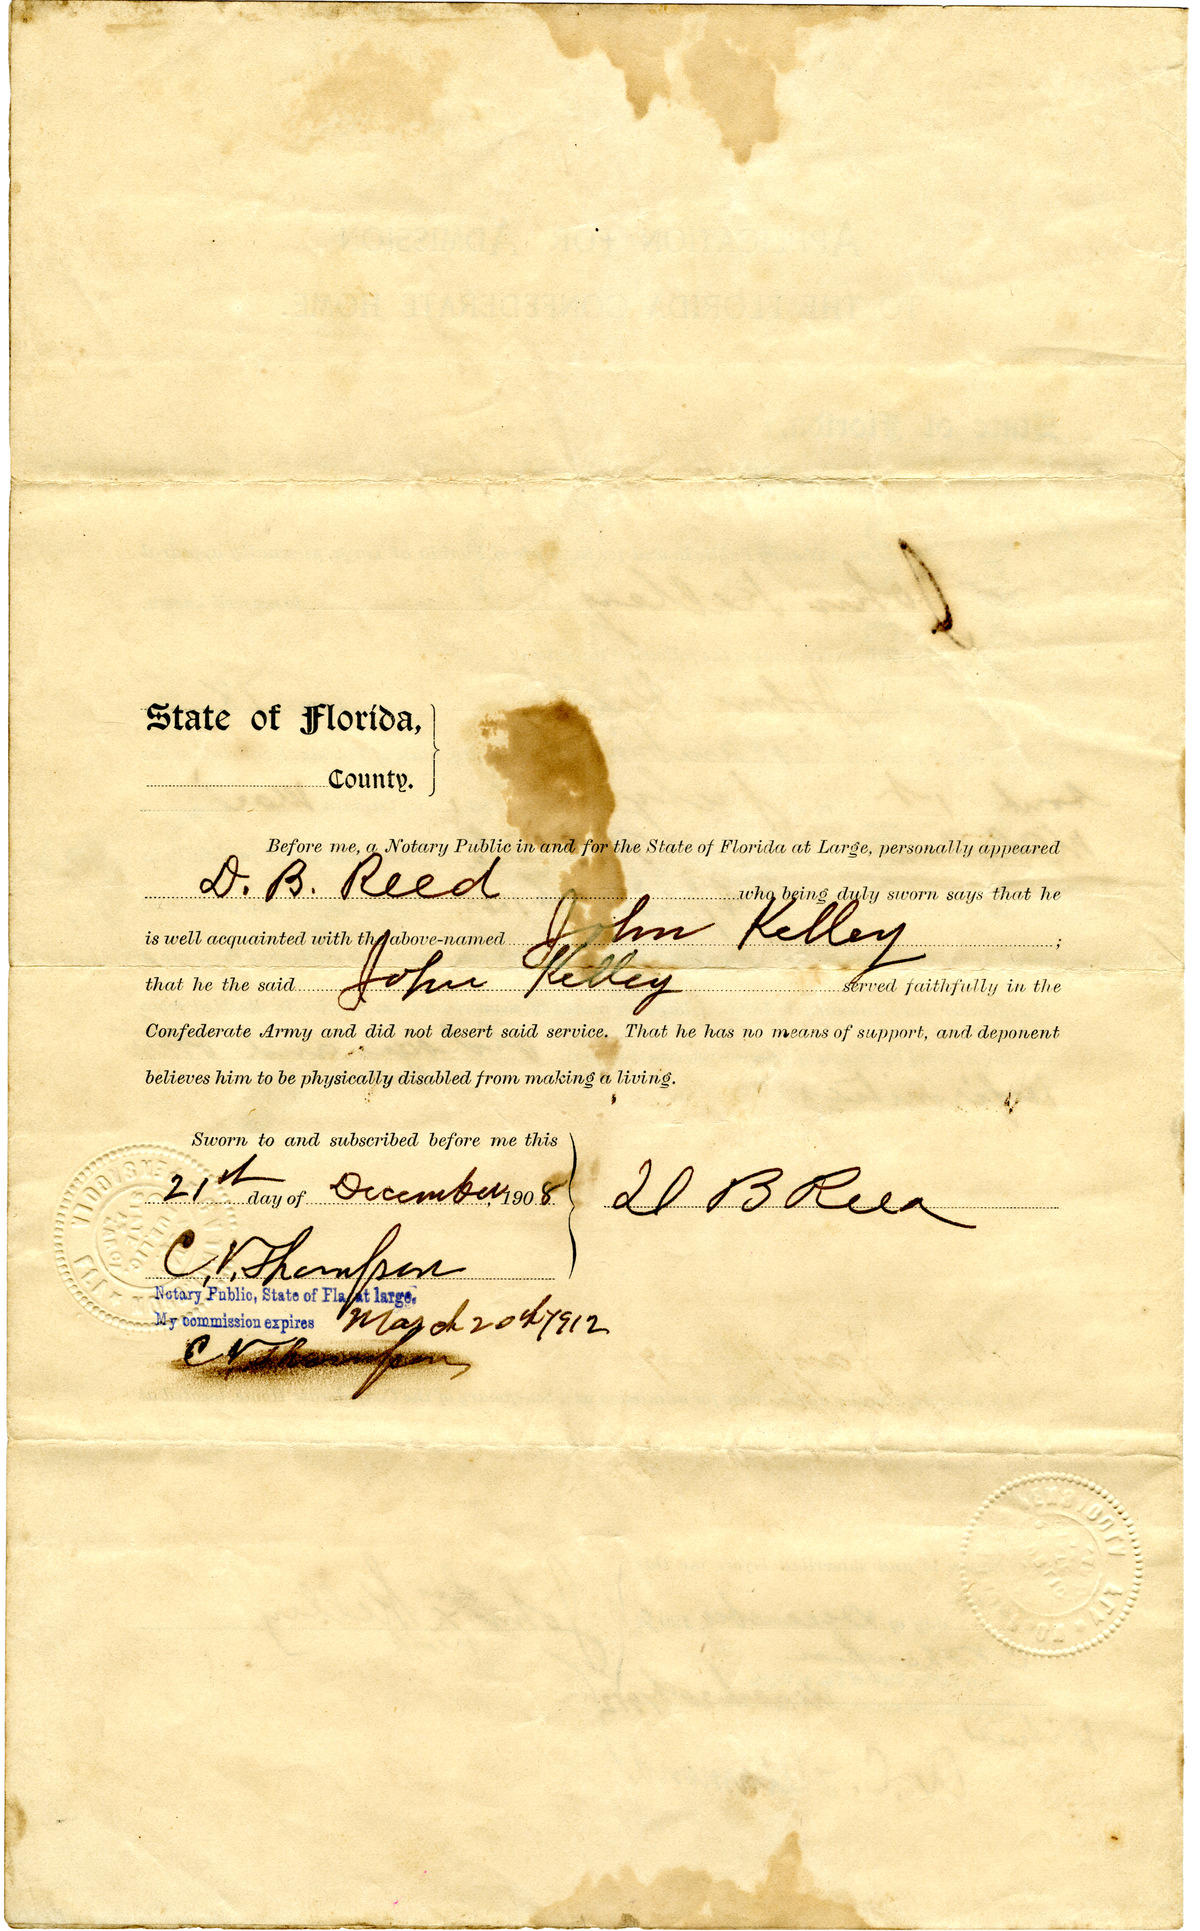 State of Florida,
County.
Before me, a Notary Public in and for the State of Florida at Large, personally appeared
D. B. Reed who being duly sworn says that he
is well acquainted with the above-named John Kelley ;
that he the said John Kelley served faithfully in the
Confederate Army and did not desert said service. That he has no means of support, and deponent
believes him to be physically disabled from making a living.
Sworn to and subscribed before me this
21st day of December, 1908
D B Reed
C. V. Thompson
Notary Public, State of Fla, at large.
My commission expires March 20th 1912
C V Thompson